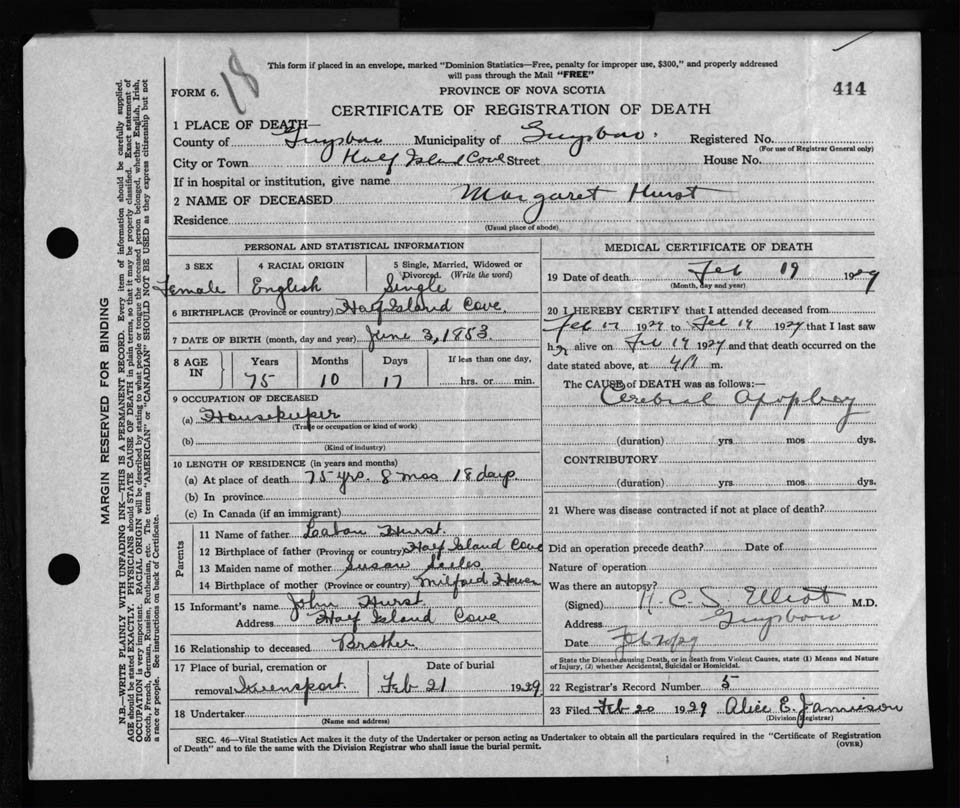 18
This form if placed in an envelope, marked "Dominion Statistics—Free, penalty for improper use, $300," and properly addressed
will pass through the Mail "FREE"
FORM 6.
PROVINCE OF NOVA SCOTIA
414
CERTIFICATE OF REGISTRATION OF DEATH
1 PLACE OF DEATH—
County of Guysboro Municipality of Guysboro. Registered No.
(For use of Registrar General only)
City or Town Half Island Cove Street House No.
If in hospital or institution, give name
2 NAME OF DECEASED Margaret Hurst
Residence
(Usual place of abode)
PERSONAL AND STATISTICAL INFORMATION
3 SEX 4 RACIAL ORIGIN 5 Single, Married, Widowed or Divorced. (Write the word)
Female English Single
6 BIRTHPLACE (Province or country) Half Island Cove.
7 DATE OF BIRTH (month, day and year) June 3, 1853.
8 AGE IN Years Months Days If less than one day,
75 10 17 hrs. or min.
9 OCCUPATION OF DECEASED
(a) Housekeeper
(Trade or occupation or kind of work)
(b)
(Kind of industry)
10 LENGTH OF RESIDENCE (in years and months)
(a) At place of death 75 yrs. 8 mos 18 days
(b) In province
(c) In Canada (if an immigrant)
Parents
11 Name of father Hurst.
12 Birthplace of father (Province or country) Half Island Cove
13 Maiden name of mother Susan
14 Birthplace of mother (Province or country) Milford Haven
15 Informant's name John Hurst
Address Half Island Cove
16 Relationship to deceased Brother.
17 Place of burial, cremation or removal Queensport. Date of burial Feb 21 1929
18 Undertaker
(Name and address)
MEDICAL CERTIFICATE OF DEATH
19 Date of death Feb 19 1929
(Month, day and year)
20 I HEREBY CERTIFY that I attended deceased from
Feb 17 1929 to Feb 19 1929 that I last saw
her alive on Feb 19 1929 and that death occurred on the
date stated above, at m.
The CAUSE of DEATH was as follows:—
Cerebral Apoplexy
(duration) yrs mos dys.
CONTRIBUTORY
(duration) yrs. mos. dys.
21 Where was disease contracted if not at place of death?
Did an operation precede death? Date of
Nature of operation
Was there an autopsy?
(Signed) C. S. Elliot M.D.
Address Guysboro
Date Feb 20/29
State the Disease causing Death, or in death from Violent Causes, state (1) Means and Nature
of Injury, (2) whether Accidental, Suicidal or Homicidal.
22 Registrar's Record Number 5
23 Filed Feb 20 1929 Alice E. Jamieson
(Division Registrar)
SEC. 46—Vital Statistics Act makes it the duty of the Undertaker or person acting as Undertaker to obtain all the particulars required in the "Certificate of Registration
of Death" and to file the same with the Division Registrar who shall issue the burial permit.
(OVER)
MARGIN RESERVED FOR BINDING
N.B.—WRITE PLAINLY WITH UNFADING INK—THIS IS A PERMANENT RECORD. Every item of information should be carefully supplied.
AGE should be stated EXACTLY. PHYSICIANS should STATE CAUSE OF DEATH in plain terms, so that it may be properly classified. Exact statement of
OCCUPATION is very important. RACIAL ORIGIN will be described by stating to what people or tongue the deceased person belonged, whether English, Irish,
Scotch, French, German, Russian, Ruthenian, etc. The terms "AMERICAN" or "CANADIAN" SHOULD NOT BE USED as they express citizenship but not
a race or people. See instructions on back of Certificate.